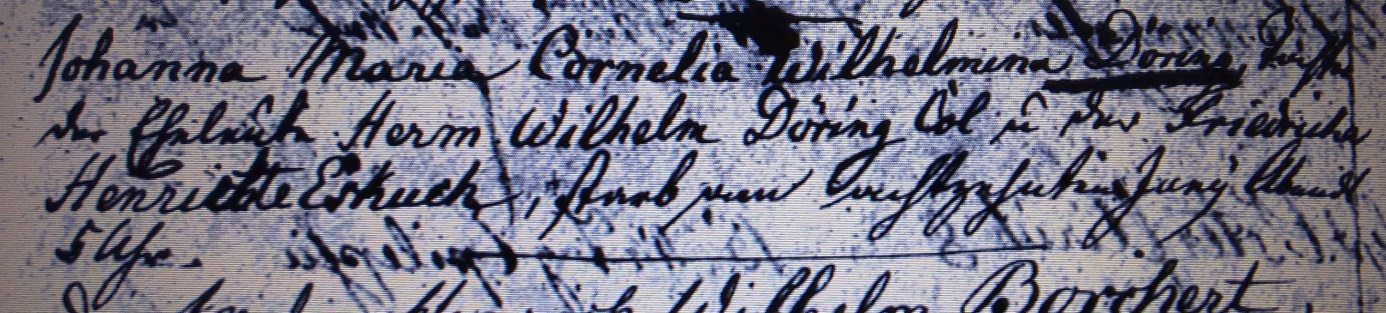 Johanna Maria Cornelia Wilhelmina Döring, Tochter
der Eheleute Herm Wilhelm Döring Col u der Friedricha
Henriette Eskuch, starb am achtzehnten Juny Abends
5 Uhr.
Wilhelm Borchert,